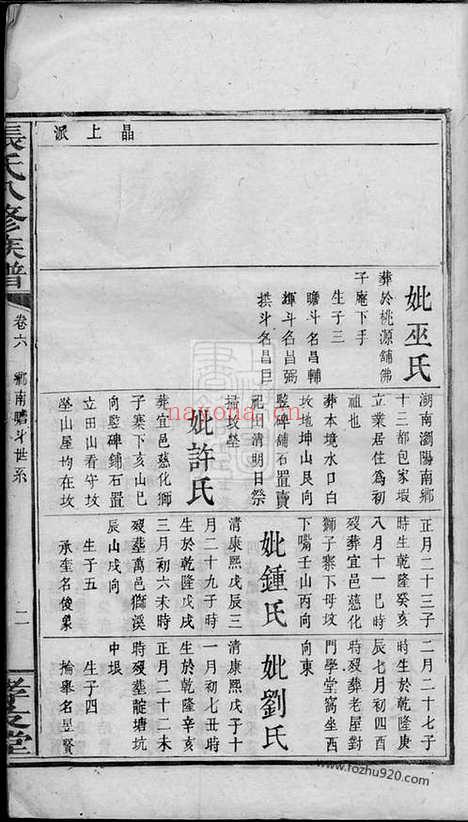 派上晶
張氏八修族譜
卷六
鄉南瞻斗世系
二
孝友堂
妣巫氏
葬於桃源舖佛
子庵下手
生子三
瞻斗名昌輔
輝斗名昌弼
拱斗名昌巨
湖南瀏陽南鄉
十三都包家塅
立業居住為初
祖也
葬本境水口白
坟地坤山艮向
豎碑舖石置賣
祀田清明日祭
掃坟塋
妣許氏
葬宜邑慈化獅
子寨下亥山巳
向豎碑舖石置
立田山看守坟
塋山屋均在坟
正月二十三子
時生於乾隆癸亥
八月十一巳時
歿葬宜邑慈化
獅子寨下母坟
下嘴壬山丙向
妣鍾氏
清康熙戊辰三
月二十九子時
生於乾隆戊戌
三月初六未時
歿塟萬邑獅溪
辰山戌向
生子五
承奎名俊彙
二月二十七子
時生於乾隆庚
辰七月初四酉
時歿葬老屋對
門學堂窩坐西
向東
妣劉氏
清康熙戊子十
一月初七丑時
生於乾隆辛亥
二月二十二未
時歿塟龍塘坑
中垠
生子四
掄舉名昱賢
www.fozhu920.com
nayona.cn